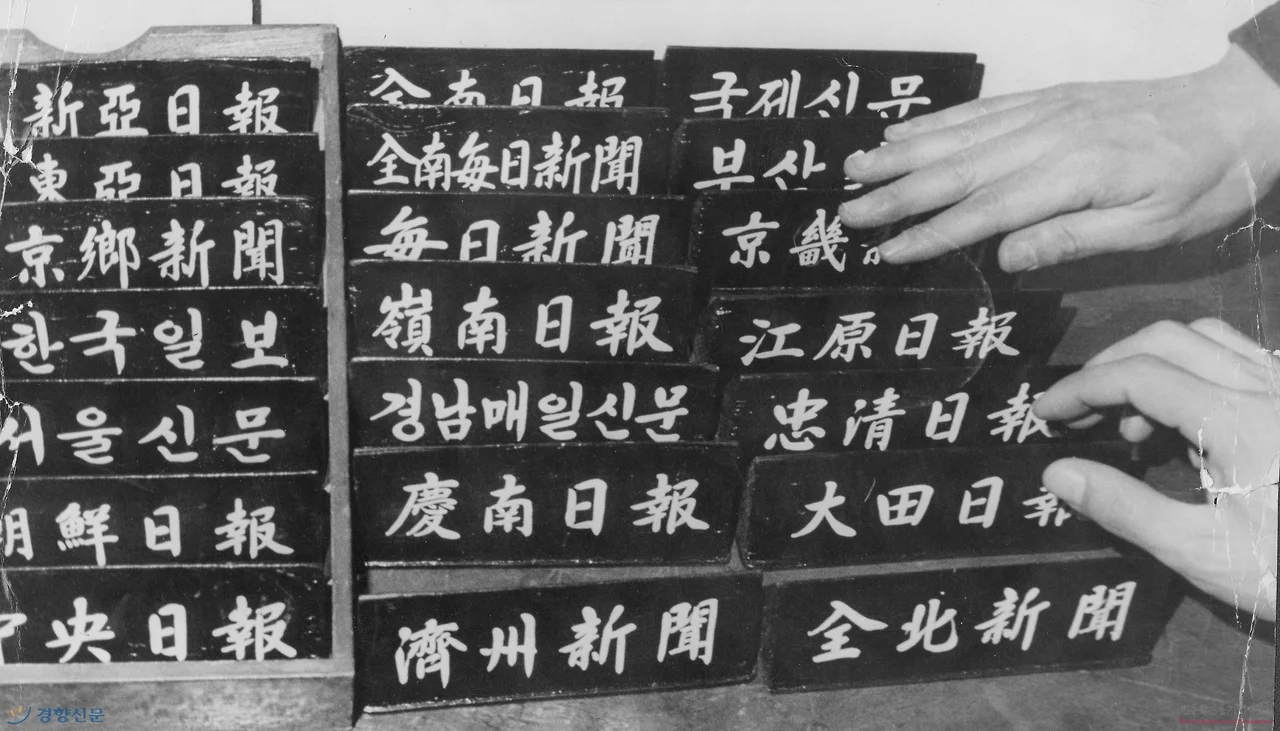 新亞日報
東亞日報
京鄉新聞
한국일보
서울신문
朝鮮日報
中央日報
全南日報
全南每日新聞
每日新聞
嶺南日報
경남매일신문
慶南日報
濟州新聞
국제신문
부산
京畿
江原日報
忠清日報
大田日報
全北新聞
경향신문